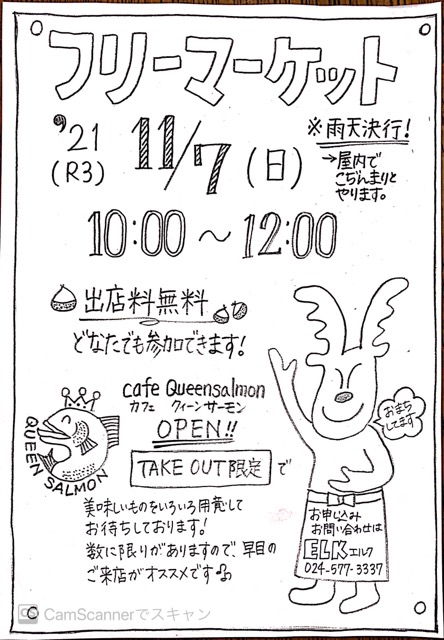 フリーマーケット
'21
(R3)
11/7(日)
※雨天決行!
→屋内で
こぢんまりと
やります。
10:00～12:00
出店料無料
どなたでも参加できます!
cafe Queensalmon
カフェ クィーンサーモン
OPEN!!
QUEEN SALMON
TAKE OUT限定で
美味しいものをいろいろ用意して
お待ちしております!
数に限りがありますので、早目の
ご来店がオススメです♪
おまち
してます
お申し込み
お問い合わせは
ELKエルク
024-577-3337
CS CamScannerでスキャン